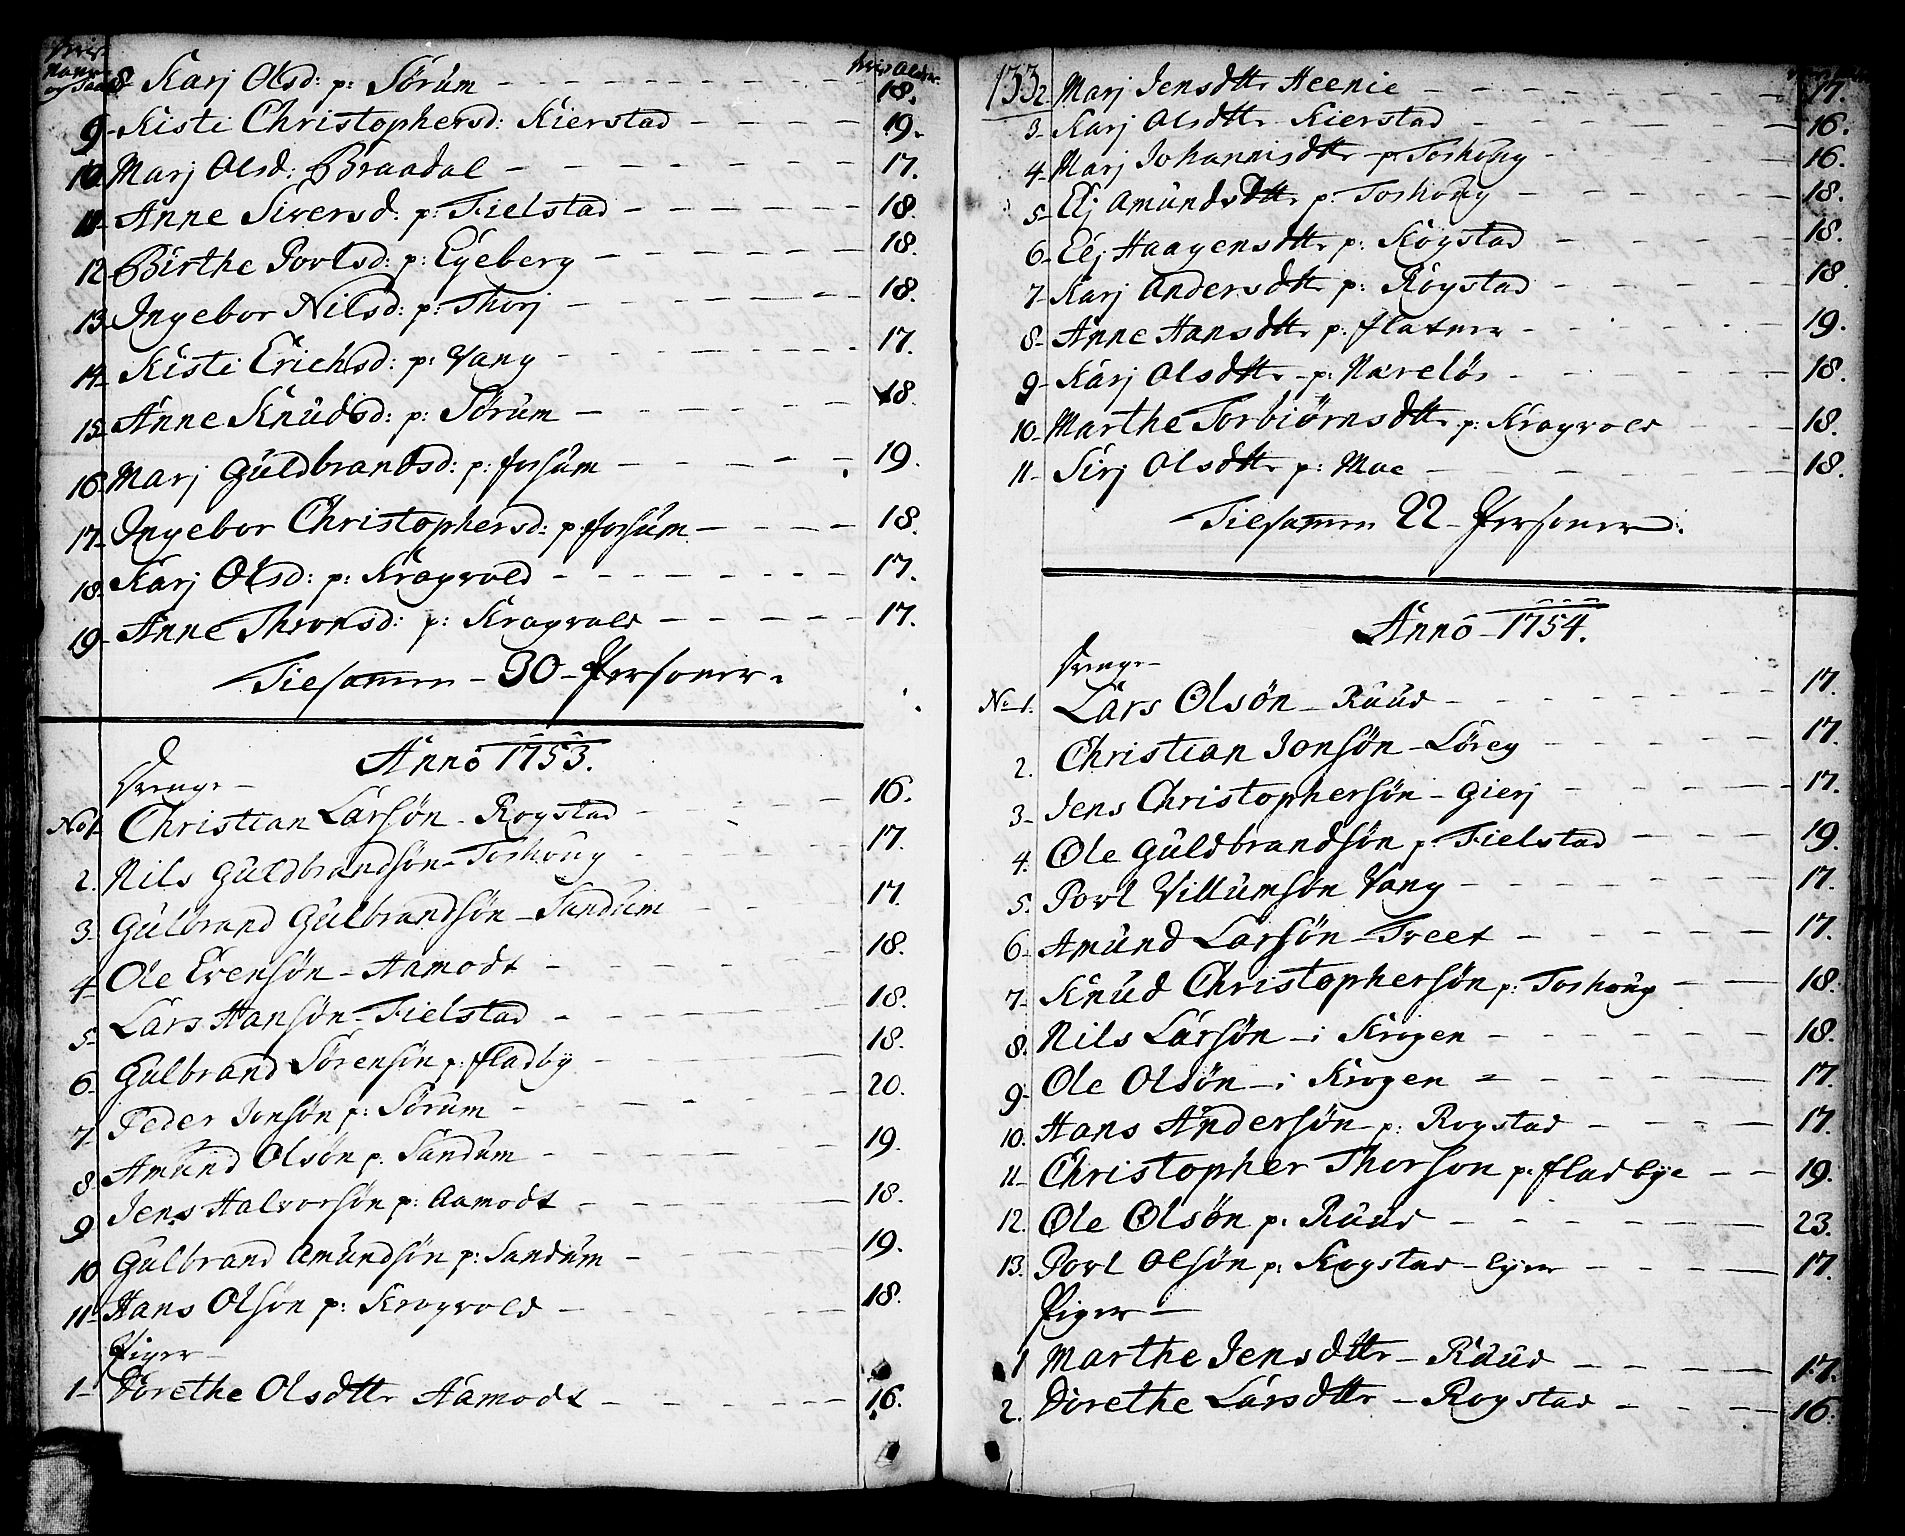 hvis Alder
8 Karj Olsd: p: Sørum - 18.
9 Kisti Christophersd: Kierstad - 19.
10 Marj Olsd: Braadal - 17.
11 Anne Siversd: p: Fielstad - 18.
12 Birthe Povlsd: p: Eyeberg - 18.
13 Ingebor Nilsd: p: Thorj - 18.
14 Kisti Erichsd: p: Vang - 17.
15 Anne Knudsd: p: Sørum - 18.
16 Marj Guldbrandsd: p: Forsum - 19.
17 Ingebor Christophersd: p Forsum - 18.
18 Karj Olsd: p: Kragvold - 17.
19 Anne Thronsd: p: Kragvold - 17.
Tilsammen - 30 - Personer.
Anno 1753.
Drenge -
No 1 Christian Larsøn - Rogstad - 16.
2. Nils Guldbrandsøn - Toshoug - 17.
3 Gulbrand Gulbrandsøn - Sandum - 17.
4 Ole Evensøn - Aamodt - 18.
5 Lars Hansøn - Fielstad - 18.
6 Gulbrand Sørensøn p: Fladby - 18.
7 Peder Jonsøn p: Sørum - 20.
8 Amund Olsøn p. Sandum - 19.
9 Jens Halvorsøn p: Aamodt - 18.
10 Gulbrand Amundsøn p: Sandum - 19.
11 Hans Olsøn p: Kragvold - 18.
Piger -
1 Dorethe Olsdttr Aamodt - 16.
133
2. Marj Jensdttr Heenie - 17.
3 Karj Olsdttr Kierstad - 16.
4 Marj Johannisdttr p Toshoug - 16.
5 Elj Amundsdttr p: Toshoug - 18.
6 Elj Haagensdttr p: Rogstad - 18.
7 Karj Andersdttr p: Rogstad - 18
8 Anne Hansdttr p: Flatner - 19.
9 Karj Olsdttr - p: Nareløs - 18.
10 Marthe Torbiørnsdttr p: Kragvold - 18.
11 Sirj Olsdttr p: Moe - 18.
Tilsammen 22 - Personer.
Anno - 1754.
Drenge -
No 1. Lars Olsøn - Ruud - 17.
2. Christian Jonsøn - Lørey - 17.
3 Jens Christophersøn - Gierj - 17.
4. Ole Guldbrandsøn p: Fielstad - 19.
5. Povl Villumsøn Vang - 17.
6 Amund Larsøn - Tveet - 17.
7 Knud Christophersøn p: Toshoug - 18.
8. Nils Larsøn - i Krogen - 18.
9 Ole Olsøn - i Krogen - 17.
10. Hans Andersøn - p: Rogstad - 17.
11 Christopher Thorson p: Fladbye - 19.
12. Ole Olsøn p: Ruud - 23.
13. Povl Olsøn p: Rogstad - Eyer - 17.
Piger -
1 Marthe Jensdttr - Ruud - 17.
2. Dorethe Larsdttr - Rogstad - 16.